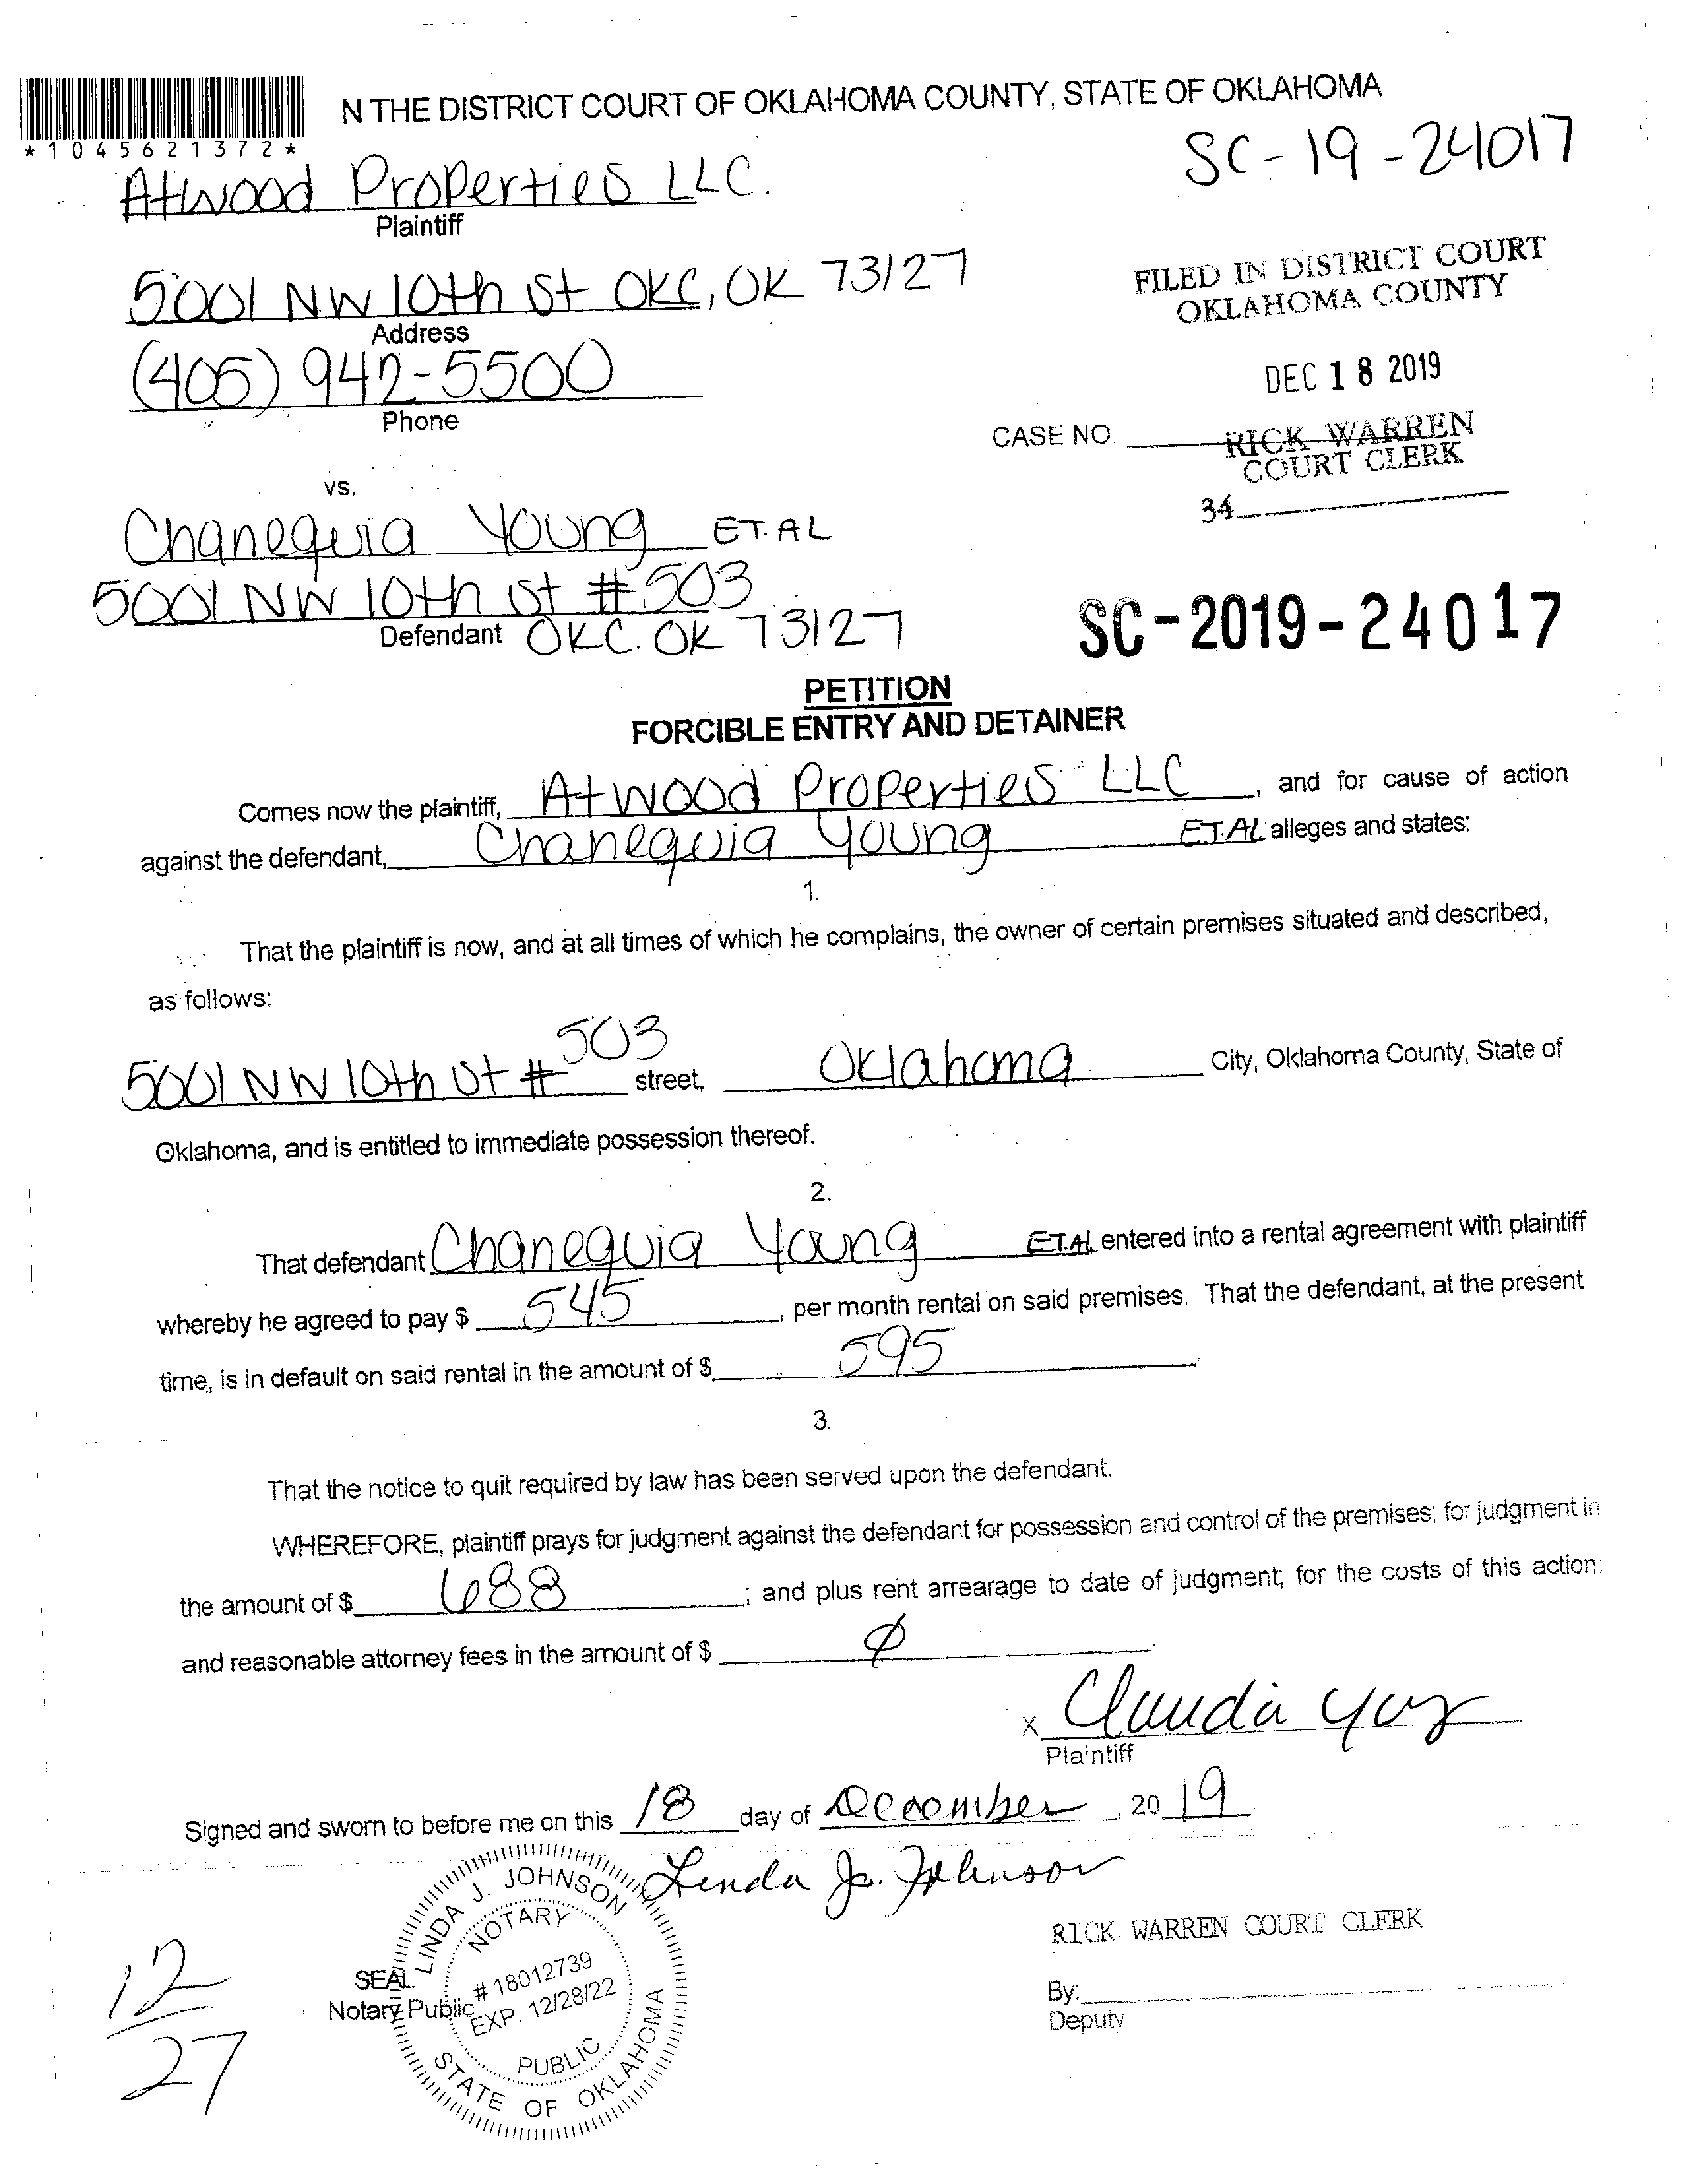 N THE DISTRICT COURT OF OKLAHOMA COUNTY, STATE OF OKLAHOMA
*1045621372*
SC-19-24017
Atwood Properties LLC.
Plaintiff
5001 NW 10th St OKC, OK 73127
Address
(405) 942-5500
Phone
FILED IN DISTRICT COURT
OKLAHOMA COUNTY
DEC 18 2019
CASE NO.
RICK WARREN
COURT CLERK
34
vs.
Chanequia Young ET.AL
5001 NW 10th St #503
Defendant OKC. OK 73127
SC-2019-24017
PETITION
FORCIBLE ENTRY AND DETAINER
Comes now the plaintiff, Atwood Properties LLC, and for cause of action
against the defendant, Chanequia Young ET.AL alleges and states:
1.
That the plaintiff is now, and at all times of which he complains, the owner of certain premises situated and described,
as follows:
5001 NW 10th St # 503 street, Oklahoma City, Oklahoma County, State of
Oklahoma, and is entitled to immediate possession thereof.
2.
That defendant Chanequia Young ET.AL entered into a rental agreement with plaintiff
whereby he agreed to pay $ 545, per month rental on said premises. That the defendant, at the present
time, is in default on said rental in the amount of $ 595
3.
That the notice to quit required by law has been served upon the defendant.
WHEREFORE, plaintiff prays for judgment against the defendant for possession and control of the premises; for judgment in
the amount of $ 688; and plus rent arrearage to date of judgment; for the costs of this action;
and reasonable attorney fees in the amount of $ Ø
x Claudia
Plaintiff
Signed and sworn to before me on this 18 day of December, 2019
Linda J. Johnson
LINDA J. JOHNSON
NOTARY
# 18012739
EXP. 12/28/22
PUBLIC
STATE OF OKLAHOMA
SEAL
Notary Public
RICK WARREN COURT CLERK
By:
Deputy
12
27